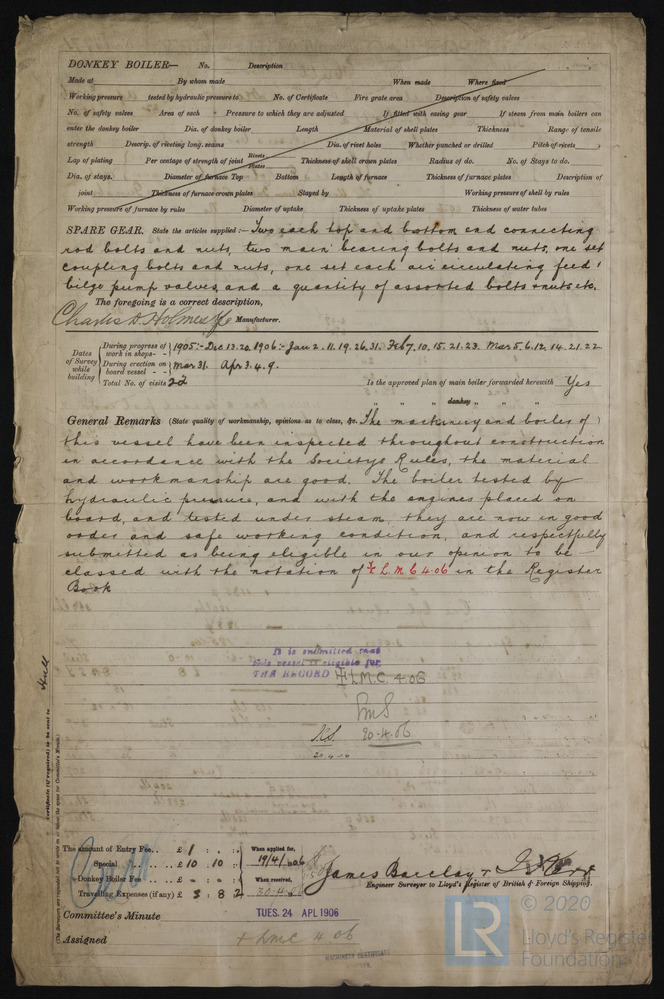 DONKEY BOILER— No. Description
Made at By whom made When made Where fixed
Working pressure tested by hydraulic pressure to No. of Certificate Fire grate area Description of safety valves
No. of safety valves Area of each Pressure to which they are adjusted If fitted with easing gear If steam from main boilers can
enter the donkey boiler Dia. of donkey boiler Length Material of shell plates Thickness Range of tensile
strength Descrip. of riveting long. seams Dia. of rivet holes Whether punched or drilled Pitch of rivets
Lap of plating Per centage of strength of joint Rivets Plates Thickness of shell crown plates Radius of do. No. of Stays to do.
Dia. of stays. Diameter of furnace Top Bottom Length of furnace Thickness of furnace plates Description of
joint Thickness of furnace crown plates Stayed by Working pressure of shell by rules
Working pressure of furnace by rules Diameter of uptake Thickness of uptake plates Thickness of water tubes
SPARE GEAR. State the articles supplied:— Two each top and bottom end connecting
rod bolts and nuts, two main bearing bolts and nuts, one set
coupling bolts and nuts, one set each air circulating feed &
bilge pump valves and a quantity of assorted bolts & nuts etc.
The foregoing is a correct description,
Charles D Holmes & Co Manufacturer.
Dates of Survey while building
During progress of work in shops - - 1905:- Dec 13. 20. 1906:- Jan 2. 11. 19. 26. 31. Feb 7. 10. 15. 21. 23. Mar 5. 6. 12. 14. 21. 22
During erection on board vessel - - Mar 31. Apr 3. 4. 9.
Total No. of visits 22 Is the approved plan of main boiler forwarded herewith Yes
" " " donkey " " "
General Remarks (State quality of workmanship, opinions as to class, &c. The machinery and boiler of
this vessel have been inspected throughout construction
in accordance with the Societys Rules, the material
and workmanship are good. The boiler tested by
hydraulic pressure, and with the engines placed on
board, and tested under steam, they are now in good
order and safe working condition, and respectfully
submitted as being eligible in our opinion to be
classed with the notation of + L.M.C 4.06 in the Register
Book
It is submitted that
this vessel is eligible for
THE RECORD + L.M.C. 4.06
20.4.06
Hull
Certificate (if required) to be sent to
The amount of Entry Fee.. £ 1 : : When applied for,
Special .. £ 10 . 10 : 19/4/1906
Donkey Boiler Fee .. £ - : - : When received,
Travelling Expenses (if any) £ 3 : 8 2 20.4.06
James Barclay &
Engineer Surveyor to Lloyd's Register of British & Foreign Shipping.
Committee's Minute TUES. 24 APL 1906
Assigned + LMC 4 06
MACHINERY CERTIFICATE
LR
© 2020
Lloyd's Register
Foundation